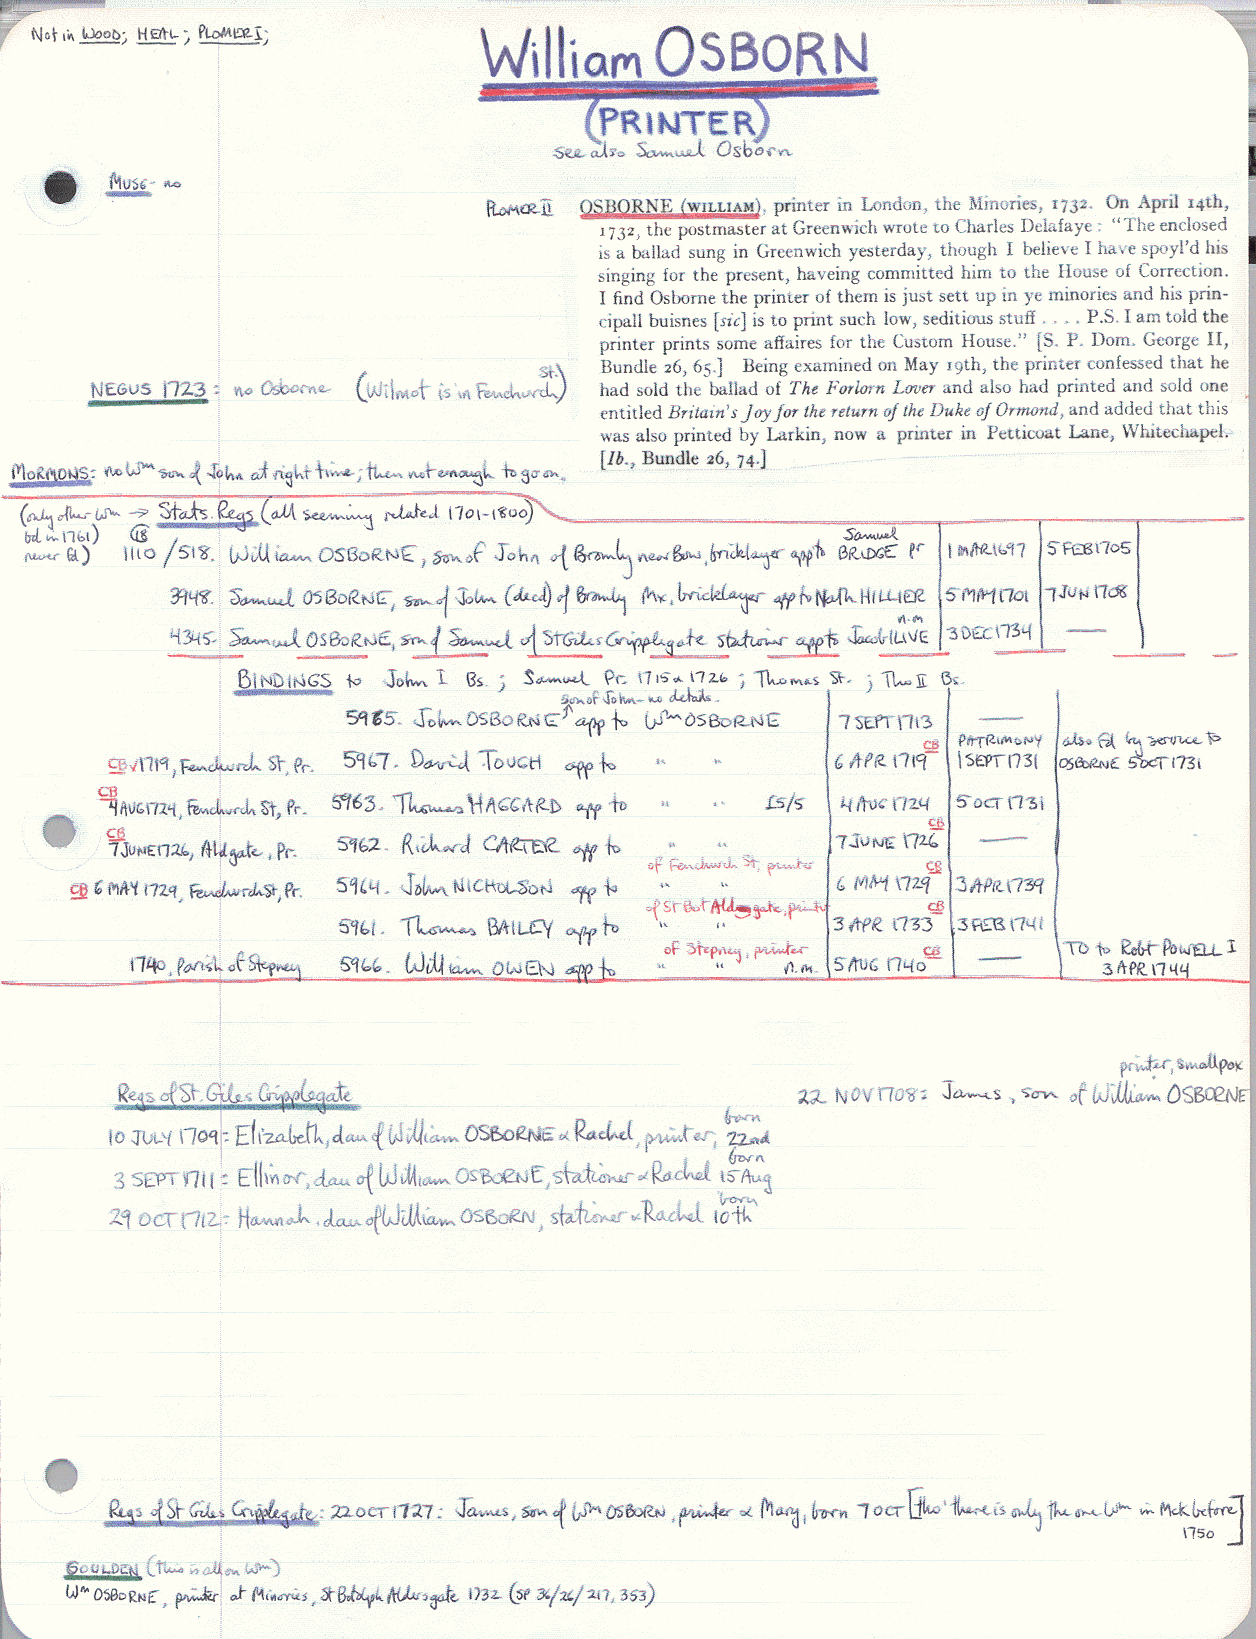 Not in WOOD; HEAL; PLOMER I;
William OSBORN
(PRINTER)
see also Samuel Osborn
MUSE - no
PLOMER II OSBORNE (WILLIAM), printer in London, the Minories, 1732. On April 14th,
1732, the postmaster at Greenwich wrote to Charles Delafaye: "The enclosed
is a ballad sung in Greenwich yesterday, though I believe I have spoyl'd his
singing for the present, haveing committed him to the House of Correction.
I find Osborne the printer of them is just sett up in ye minories and his prin-
cipall buisnes [sic] is to print such low, seditious stuff . . . . P.S. I am told the
printer prints some affaires for the Custom House." [S. P. Dom. George II,
Bundle 26, 65.] Being examined on May 19th, the printer confessed that he
had sold the ballad of The Forlorn Lover and also had printed and sold one
entitled Britain's Joy for the return of the Duke of Ormond, and added that this
was also printed by Larkin, now a printer in Petticoat Lane, Whitechapel.
[Ib., Bundle 26, 74.]
NEGUS 1723: no Osborne (Wilmot is in Fenchurch St.)
MORMONS: no Wm son of John at right time; then not enough to go on.
(only other Wm → Stats. Regs (all seeming related 1701-1800)
bd in 1761) 18
never fd) 1110/518. William OSBORNE, son of John of Bromly near Bow, bricklayer app to Samuel BRIDGE Pr 1 MAR 1697 5 FEB 1705
3948. Samuel OSBORNE, son of John (decd) of Bromly Mx, bricklayer app to Nath HILLIER 5 MAY 1701 7 JUN 1708
4345. Samuel OSBORNE, son of Samuel of St Giles Cripplegate stationer app to Jacob ILIVE n.m 3 DEC 1734 —
BINDINGS to John I Bs.; Samuel Pr. 1715 & 1726; Thomas St.; Tho II Bs.
son of John - no details.
5965. John OSBORNE app to Wm OSBORNE 7 SEPT 1713 —
CB √1719, Fenchurch St, Pr. 5967. David TOUGH app to " " 6 APR 1719 CB PATRIMONY 1 SEPT 1731 also fd by service to OSBORNE 5 OCT 1731
CB 4 AUG 1724, Fenchurch St, Pr. 5963. Thomas HAGGARD app to " " £5/5 4 AUG 1724 5 OCT 1731
CB 7 JUNE 1726, Aldgate, Pr. 5962. Richard CARTER app to " " 7 JUNE 1726 CB —
of Fenchurch St, printer
CB 6 MAY 1729, Fenchurch St, Pr. 5964. John NICHOLSON app to " " 6 MAY 1729 CB 3 APR 1739
of St Bot Aldgate, printer
5961. Thomas BAILEY app to " " 3 APR 1733 CB 3 FEB 1741
of Stepney, printer
1740, Parish of Stepney 5966. William OWEN app to " " n.m. 5 AUG 1740 CB — TO to Robt POWELL I
3 APR 1744
printer, smallpox
Regs of St. Giles Cripplegate 22 NOV 1708: James, son of William OSBORNE
10 JULY 1709: Elizabeth, dau of William OSBORNE & Rachel, printer, born 22nd
3 SEPT 1711: Ellinor, dau of William OSBORNE, stationer & Rachel born 15 Aug
29 OCT 1712: Hannah, dau of William OSBORN, stationer & Rachel born 10th
Regs of St Giles Cripplegate: 22 OCT 1727: James, son of Wm OSBORN, printer & Mary, born 7 OCT [tho' there is only the one Wm in McK before
1750]
GOULDEN (this is all on Wm)
Wm OSBORNE, printer at Minories, St Botolph Aldersgate 1732 (SP 36/26/217, 353)